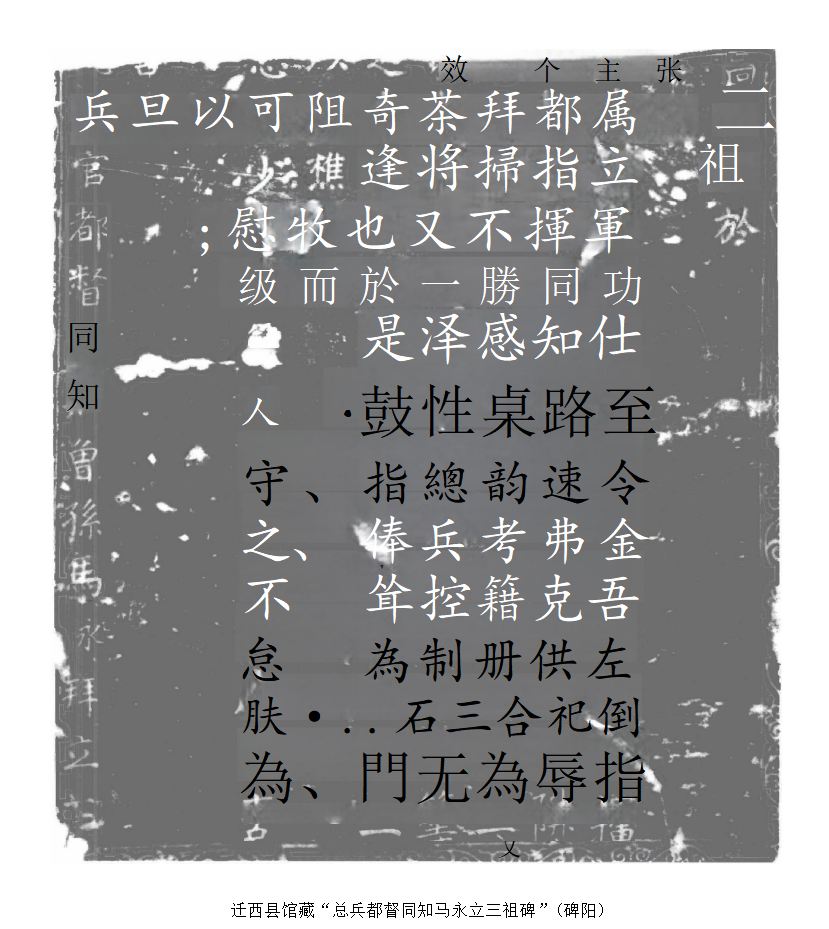 张
二祖於
主属立軍功仕至令金吾左倒指
个都指揮同知路速弗克供祀辱
拜掃不勝感桌韵考籍册合為又
效茶将又一泽性總兵控制三无
奇逢也於是鼓指俸耸為石門
阻樵牧而·、、..、
可少慰级人守之不怠肤•為
以;
旦
兵官都督同知曾孫馬永拜立石
迁西县馆藏“总兵都督同知马永立三祖碑”（碑阳）